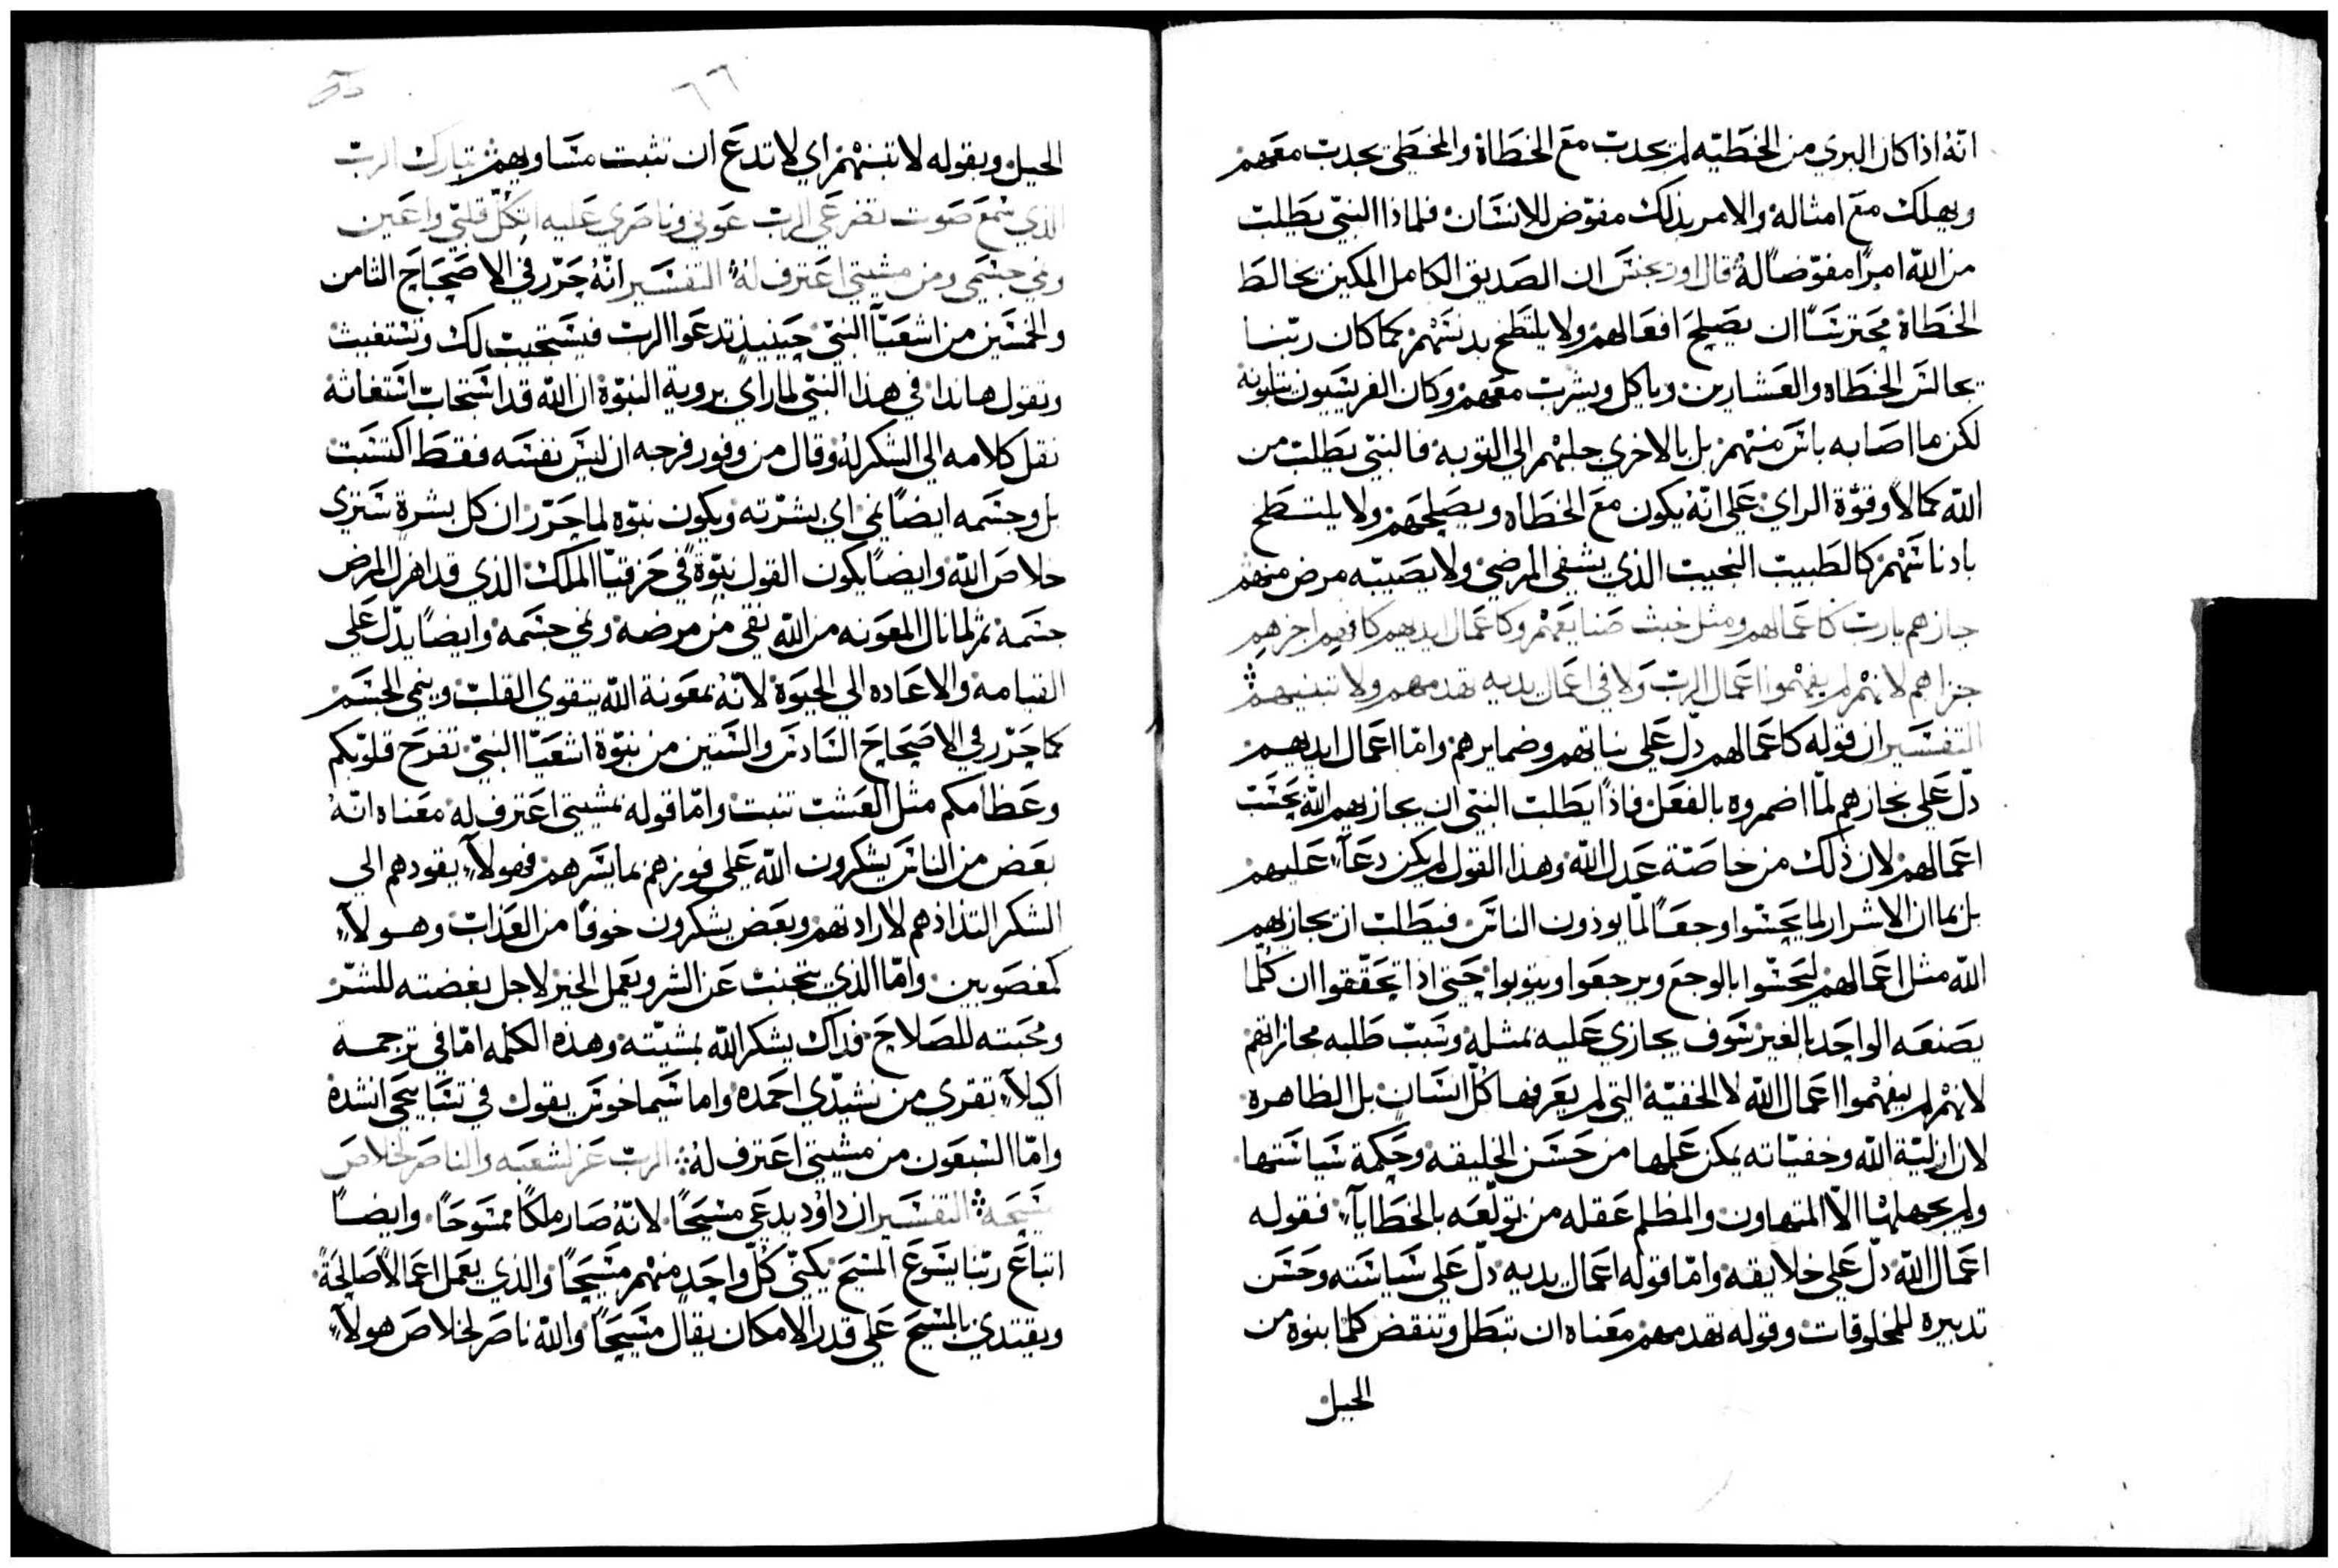 انه اذا كان البري من الخطيه لم يجدب مع الخطاة والمخطي يجدب معهم
ويهلك مع امثاله والامر بذلك مفوض للانسان فلماذا النبي يطلب
من الله امرًا مفوضًا له قال اوريجنس ان الصديق الكامل المكين يخالط
الخطاة محترسًا ان يصلح افعالهم ولا يلتطخ بدنسهم كما كان ربنا
يجالس الخطاه والعشارين وياكل ويشرب معهم وكان الفريسيون يثلبونه
لكن ما اصابه باس منهم بل بالاحري جلبهم الي التوبه فالنبي يطلب من
الله كمالاً وقوة الراي علي انه يكون مع الخطاه ويصلحهم ولا يلتطخ
بادناسهم كالطبيب النجيب الذي يشفي المرضي ولا يصيبه مرض منهم
جازهم يارب كاعمالهم ومثل خبث صنايعهم وكاعمال ايديهم كافيهم اجزهم
جزاهم لانهم لم يفهموا اعمال الرب ولا في اعمال يديه تهدمهم ولا تبنيهم
التفسير ان قوله كاعمالهم دل علي نياتهم وضمايرهم واما اعمال ايديهم
دل علي نجازهم لما اضمروه بالفعل فاذًا يطلب النبي ان يجازيهم الله بحسب
اعمالهم لان ذلك من خاصة عدل الله وهذا القول لم يكن دعآء عليهم
بل بما ان الاشرار لما يحسوا وجعًا لما يوذون الناس فيطلب ان يجازيهم
الله مثل اعمالهم ليحسوا بالوجع ويرجعوا ويتوبوا حتي اذا تحققوا ان كلما
يصنعه الواحد بالغير سوف يجازي عليه بمثله وسبب طلبه مجازاتهم
لانهم لم يفهموا اعمال الله لا الخفية التي لم يعرفها كل انسان بل الظاهره
لان ازلية الله وخفياته يمكن علمها من حسن الخليقه وحكمة سياستها
ولم يجهلها الا المتهاون والمظلم عقله من تولعه بالخطايآء فقوله
اعمال الله دل علي خلايقه واما قوله اعمال يديه دل علي سياسته وحسن
تدبيره للمخلوقات وقوله تهدمهم معناه ان تبطل وتنقض كلما بنوه من
الحيل
٦٦
الحيل وبقوله لا تبنيهم اي لا تدع ان تثبت مساويهم تبارك الرب
الذي سمع صوت تضرعي الرب عوني وناصري عليه اتكل قلبي واعين
ونمي جسمي ومن مشيتي اعترف له التفسير انه حرر في الاصحاح الثامن
والخمسين من اشعيآ النبي حينيذ تدعوا الرب فيستجيب لك وتستغيث
وتقول هانذا في هذا النبي لما راي بروية النبوة ان الله قد استجاب استغاثته
نقل كلامه الي الشكر له وقال من وفور فرحه ان ليس نفسه فقط اكتسبت
بل وجسمه ايضًا نمي اي بشرته ويكون نبوه لما حرر ان كل بشرة ستري
خلاص الله وايضًا يكون القول نبوة في حزقيآ الملك الذي قد اهزل المرض
جسمه ثم لما نال المعونه من الله نقي من مرضه ونمي جسمه وايضًا يدل علي
القيامه والاعاده الي الحيوة لانه بمعونة الله يتقوي القلب وينمي الجسم
كما حرر في الاصحاح السادس والستين من نبوة اشعيآ النبي تفرح قلوبكم
وعظامكم مثل العشب تنبت واما قوله بمشيتي اعترف له معناه انه
بعض من الناس يشكرون الله علي فوزهم بما يسرهم فهولآء يقودهم الي
الشكر التذاذهم لارادتهم وبعض يشكرون خوفًا من العذاب وهولآء
كمغصوبين واما الذي يتجنب عن الشر ويعمل الخير لاجل بغضته للشر
ومحبته للصلاح فذاك يشكر الله بمشيته وهذه الكلمه اما في ترجمة
اكيلآء تقري من نشيدي احمده واما سيماخوس يقول في تسابيحي انشده
واما السبعون من مشيتي اعترف له الرب عز لشعبه والناصر لخلاص
مسيحه التفسير ان داود يدعي مسيحًا لانه صار ملكًا ممسوحًا وايضًا
اتباع ربنا يسوع المسيح يكني كل واحد منهم مسيحًا والذي يعمل اعمالاً صالحةً
ويقتدي بالمسيح علي قدر الامكان يقال مسيحًا والله ناصر لخلاص هولآء